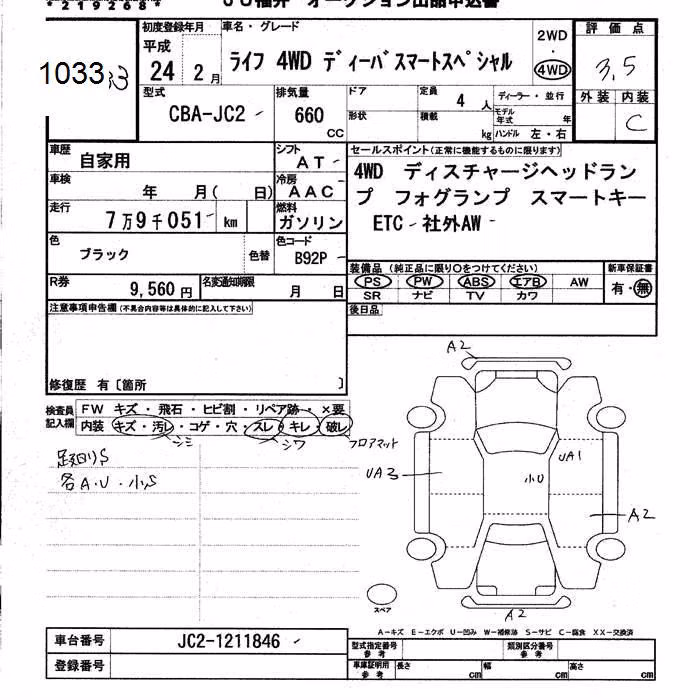 *2192868*
JU福井 オークション出品申込書
103333
初度登録年月 平成 24 2月
車名・グレード ライフ 4WD ディーバスマートスペシャル
2WD・4WD
評価点 3,5
外装 内装 C
型式 CBA-JC2
排気量 660 CC
ドア 形状
定員 4人
積載 kg
ディーラー・並行
モデル年式 年
ハンドル 左・右
車歴 自家用
シフト AT
車検 年 月( 日)
冷房 AAC
走行 7万9千051 km
燃料 ガソリン
色 ブラック 色替
色コード B92P
R券 9,560円
名変通知期限 月 日
セールスポイント(正常に機能するものに限ります)
4WD ディスチャージヘッドラン
プ フォグランプ スマートキー
ETC 社外AW
装備品 (純正品に限り○をつけてください)
PS PW ABS エアB AW
SR ナビ TV カワ
新車保証書 有・無
後日品
注意事項申告欄(不具合内容等は具体的に記入して下さい)
修復歴 有〔箇所 〕
検査員記入欄
FW キズ・飛石・ヒビ割・リペア跡・×要
内装 キズ・汚レ・コゲ・穴・スレ・キレ・破レ
シミ シワ フロアマット
足廻りS
各A・U・小S
A2
UA3
UA1
小U
A2
A2
スペア
A-キズ E-エクボ U-凹み W-補修跡 S-サビ C-腐食 XX-交換済
車台番号 JC2-1211846
登録番号
型式指定番号 参考
類別区分番号 参考
車庫証明用 参考 長さ cm 幅 cm 高さ cm